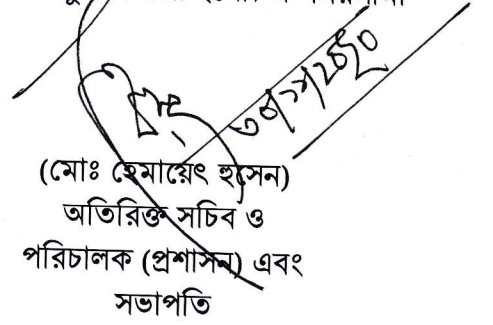 (মোঃ হেমায়েৎ হুসেন)
অতিরিক্ত সচিব ও
পরিচালক (প্রশাসন) এবং
সভাপতি